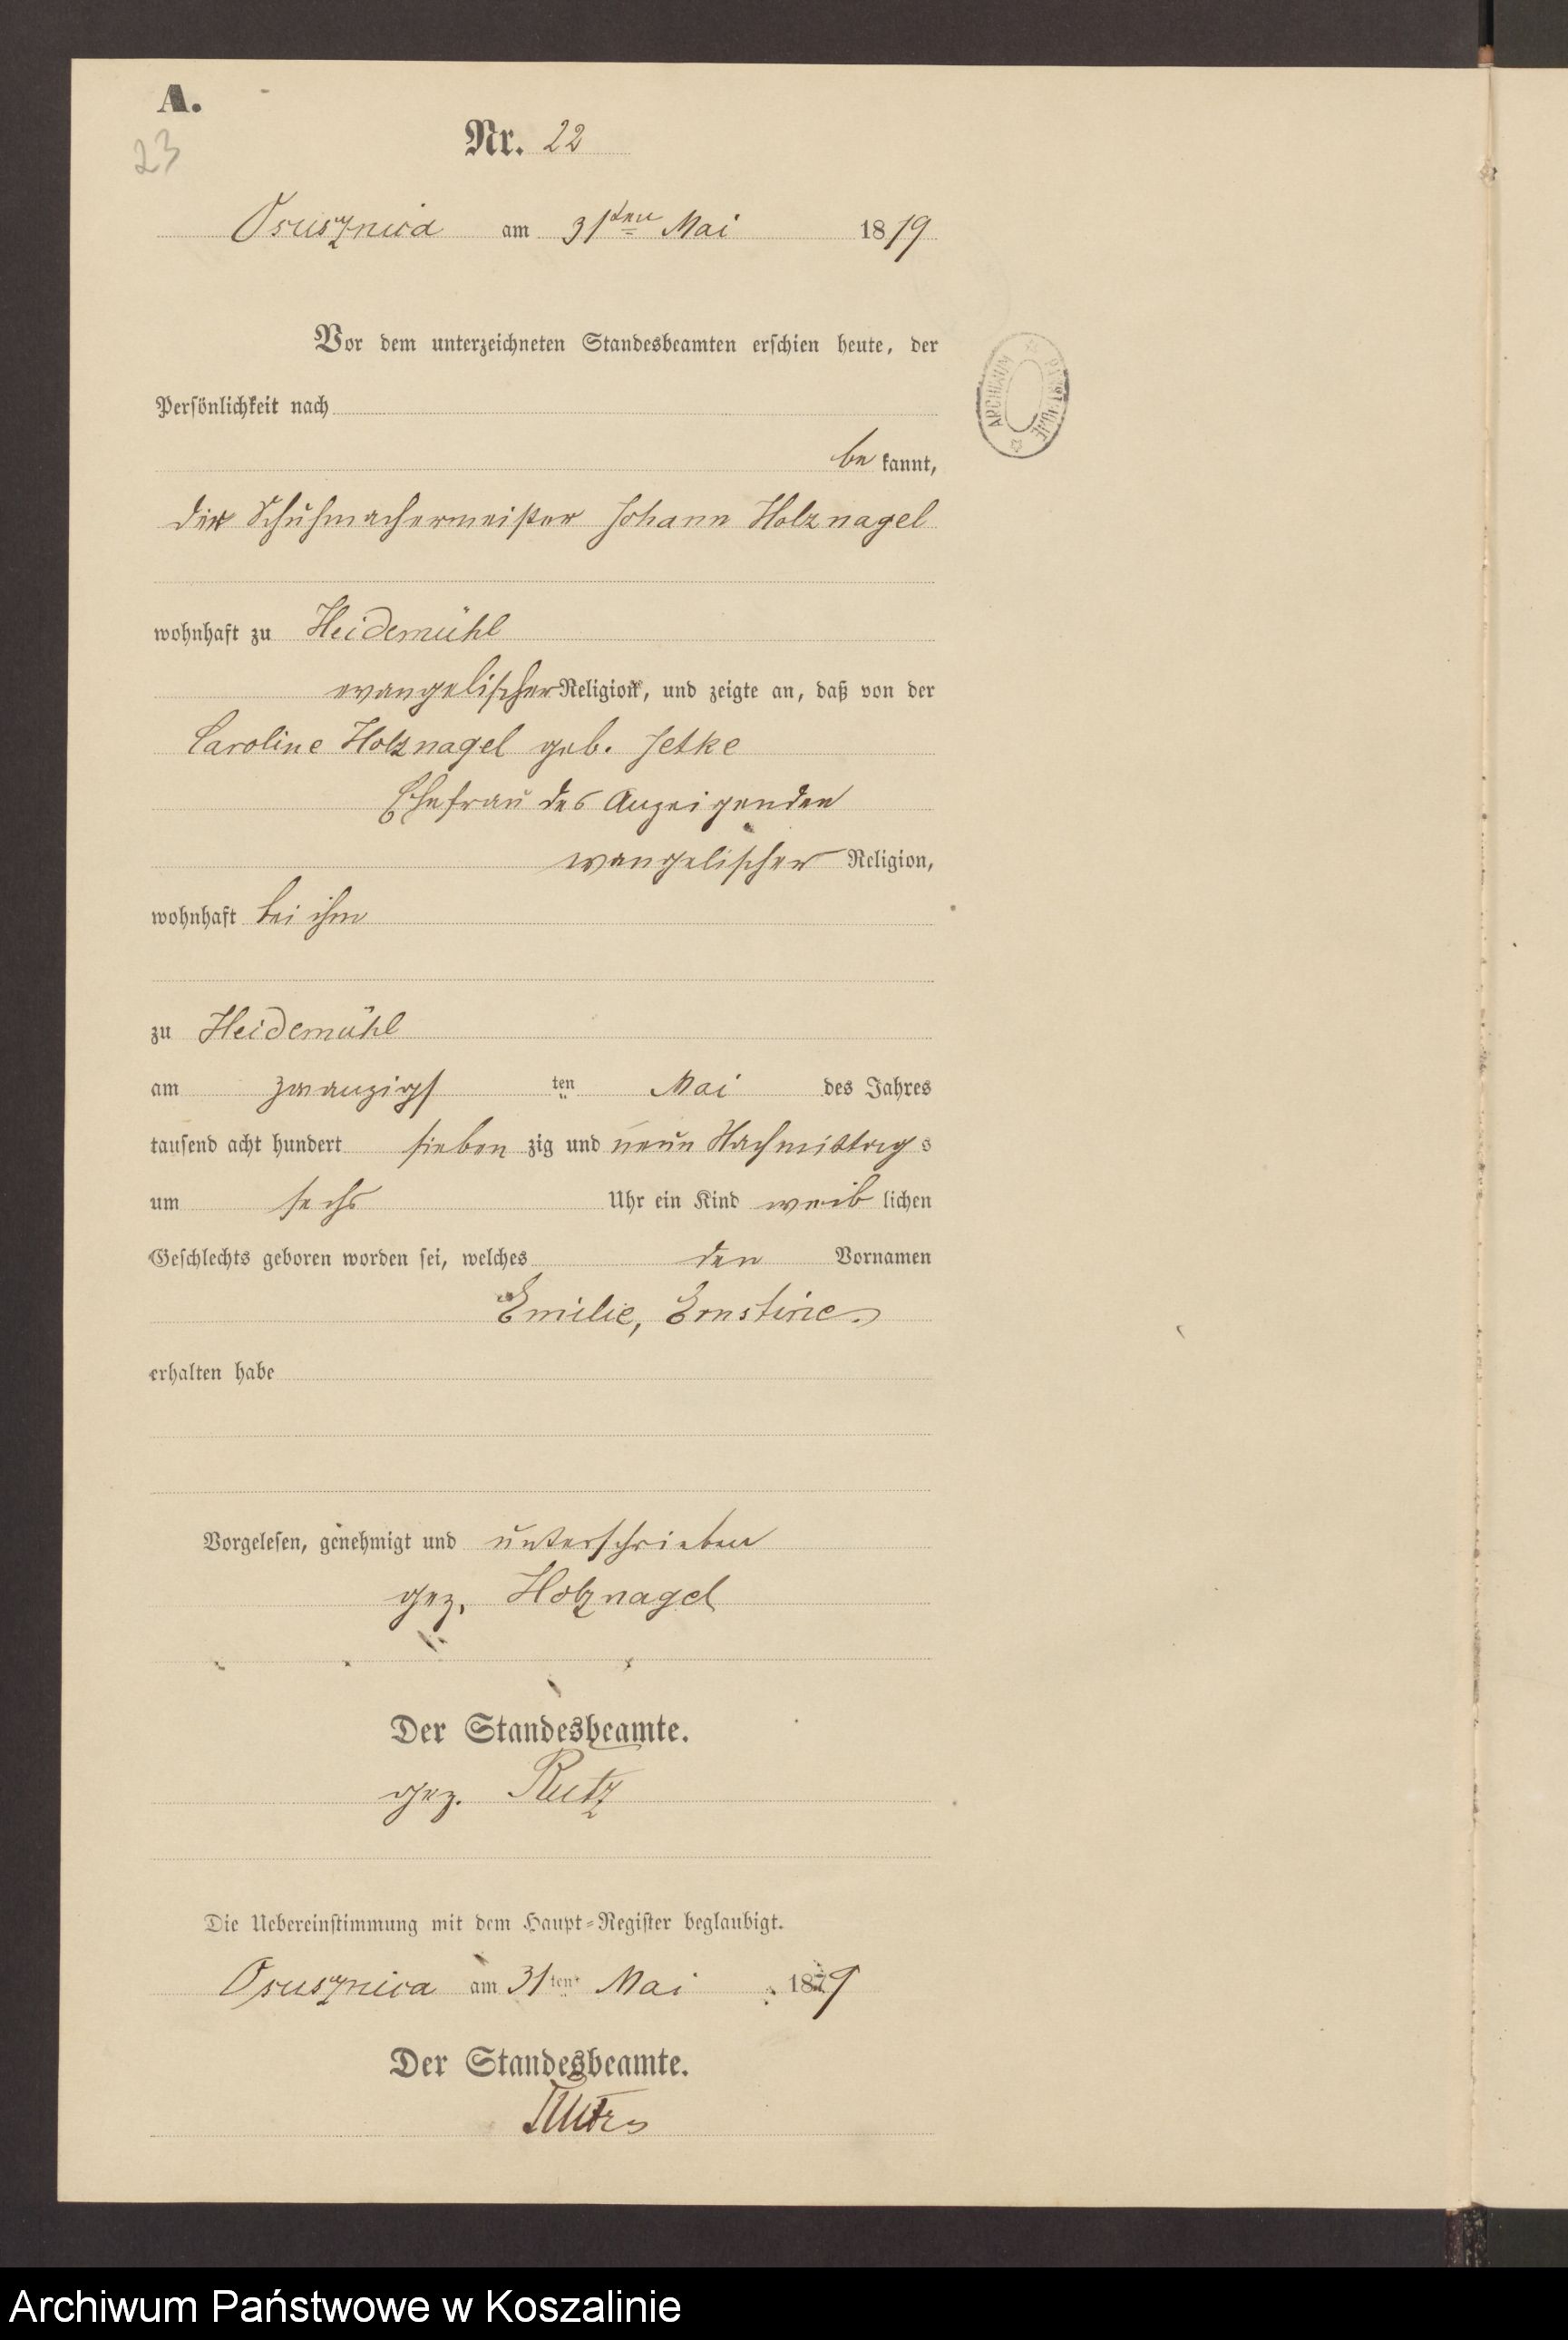 A.
23
Nr. 22
Osusznica am 31ten Mai 1879
Vor dem unterzeichneten Standesbeamten erschien heute, der
Persönlichkeit nach
be kannt,
der Schuhmachermeister Johann Holznagel
wohnhaft zu Heidemühl
evangelischer Religion, und zeigte an, daß von der
Caroline Holznagel geb. Jetke
Ehefrau des Anzeigenden
evangelischer Religion,
wohnhaft bei ihm
zu Heidemühl
am zwanzigs ten Mai des Jahres
tausend acht hundert sieben zig und neun Nachmittag s
um sechs Uhr ein Kind weib lichen
Geschlechts geboren worden sei, welches den Vornamen
Emilie, Ernstine
erhalten habe
Vorgelesen, genehmigt und unterschrieben
gez. Holznagel
Der Standesbeamte.
gez. Rutz
Die Uebereinstimmung mit dem Haupt-Register beglaubigt.
Osusznica am 31ten Mai 1879
Der Standesbeamte.
Rutz
ARCHIWUM
Archiwum Państwowe w Koszalinie